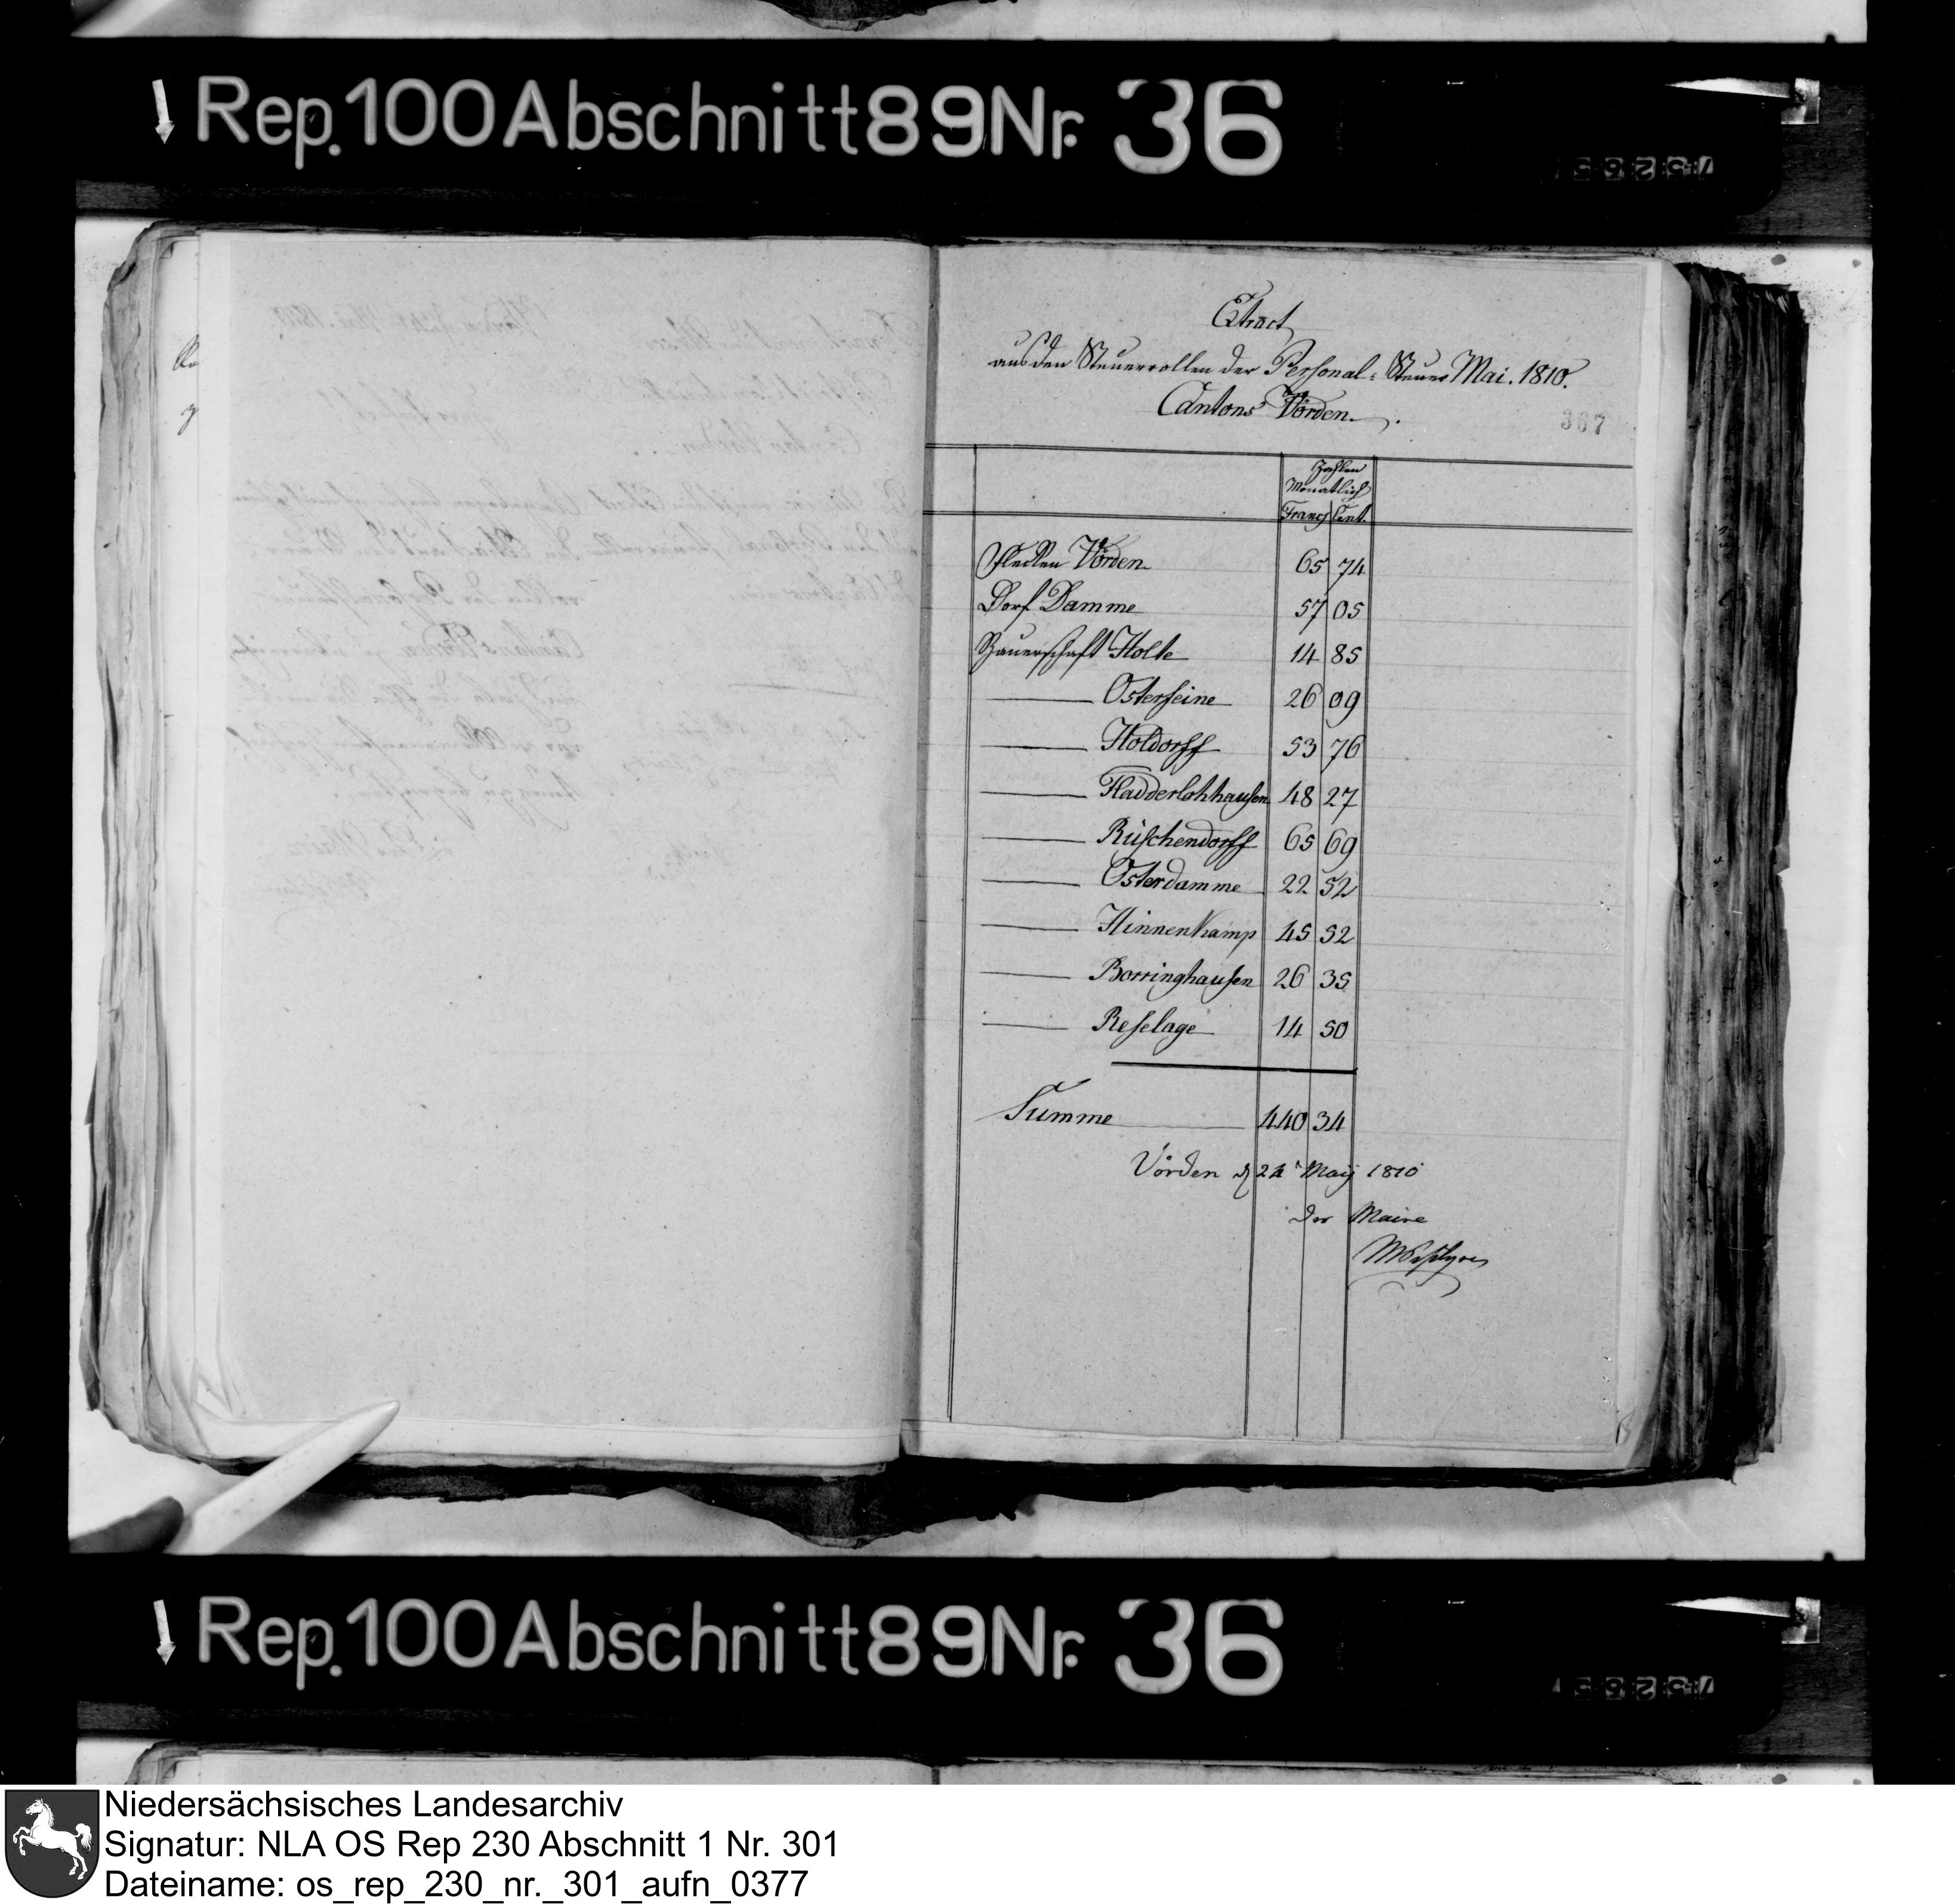 Rep. 100 Abschnitt 89 Nr. 36
Extract
aus den Steuerrollen der Personal-Steuer Mai. 1810.
Cantons Vörden.
367
Zahlen
Monatlich
Francs Cent.
Flecken Vörden 65 74
Dorf Damme 57 05
Bauerschaft Holte 14 85
Osterfeine 26 09
Holdorff 53 76
Fladderlohhausen 48 27
Rüschendorff 65 69
Osterdamme 22 52
Hinnenkamp 45 52
Borringhausen 26 35
Reselage 14 50
Summe 440 34
Vörden d 24 Maij 1810
der Maire
Rep. 100 Abschnitt 89 Nr. 36
Niedersächsisches Landesarchiv
Signatur: NLA OS Rep 230 Abschnitt 1 Nr. 301
Dateiname: os_rep_230_nr._301_aufn_0377